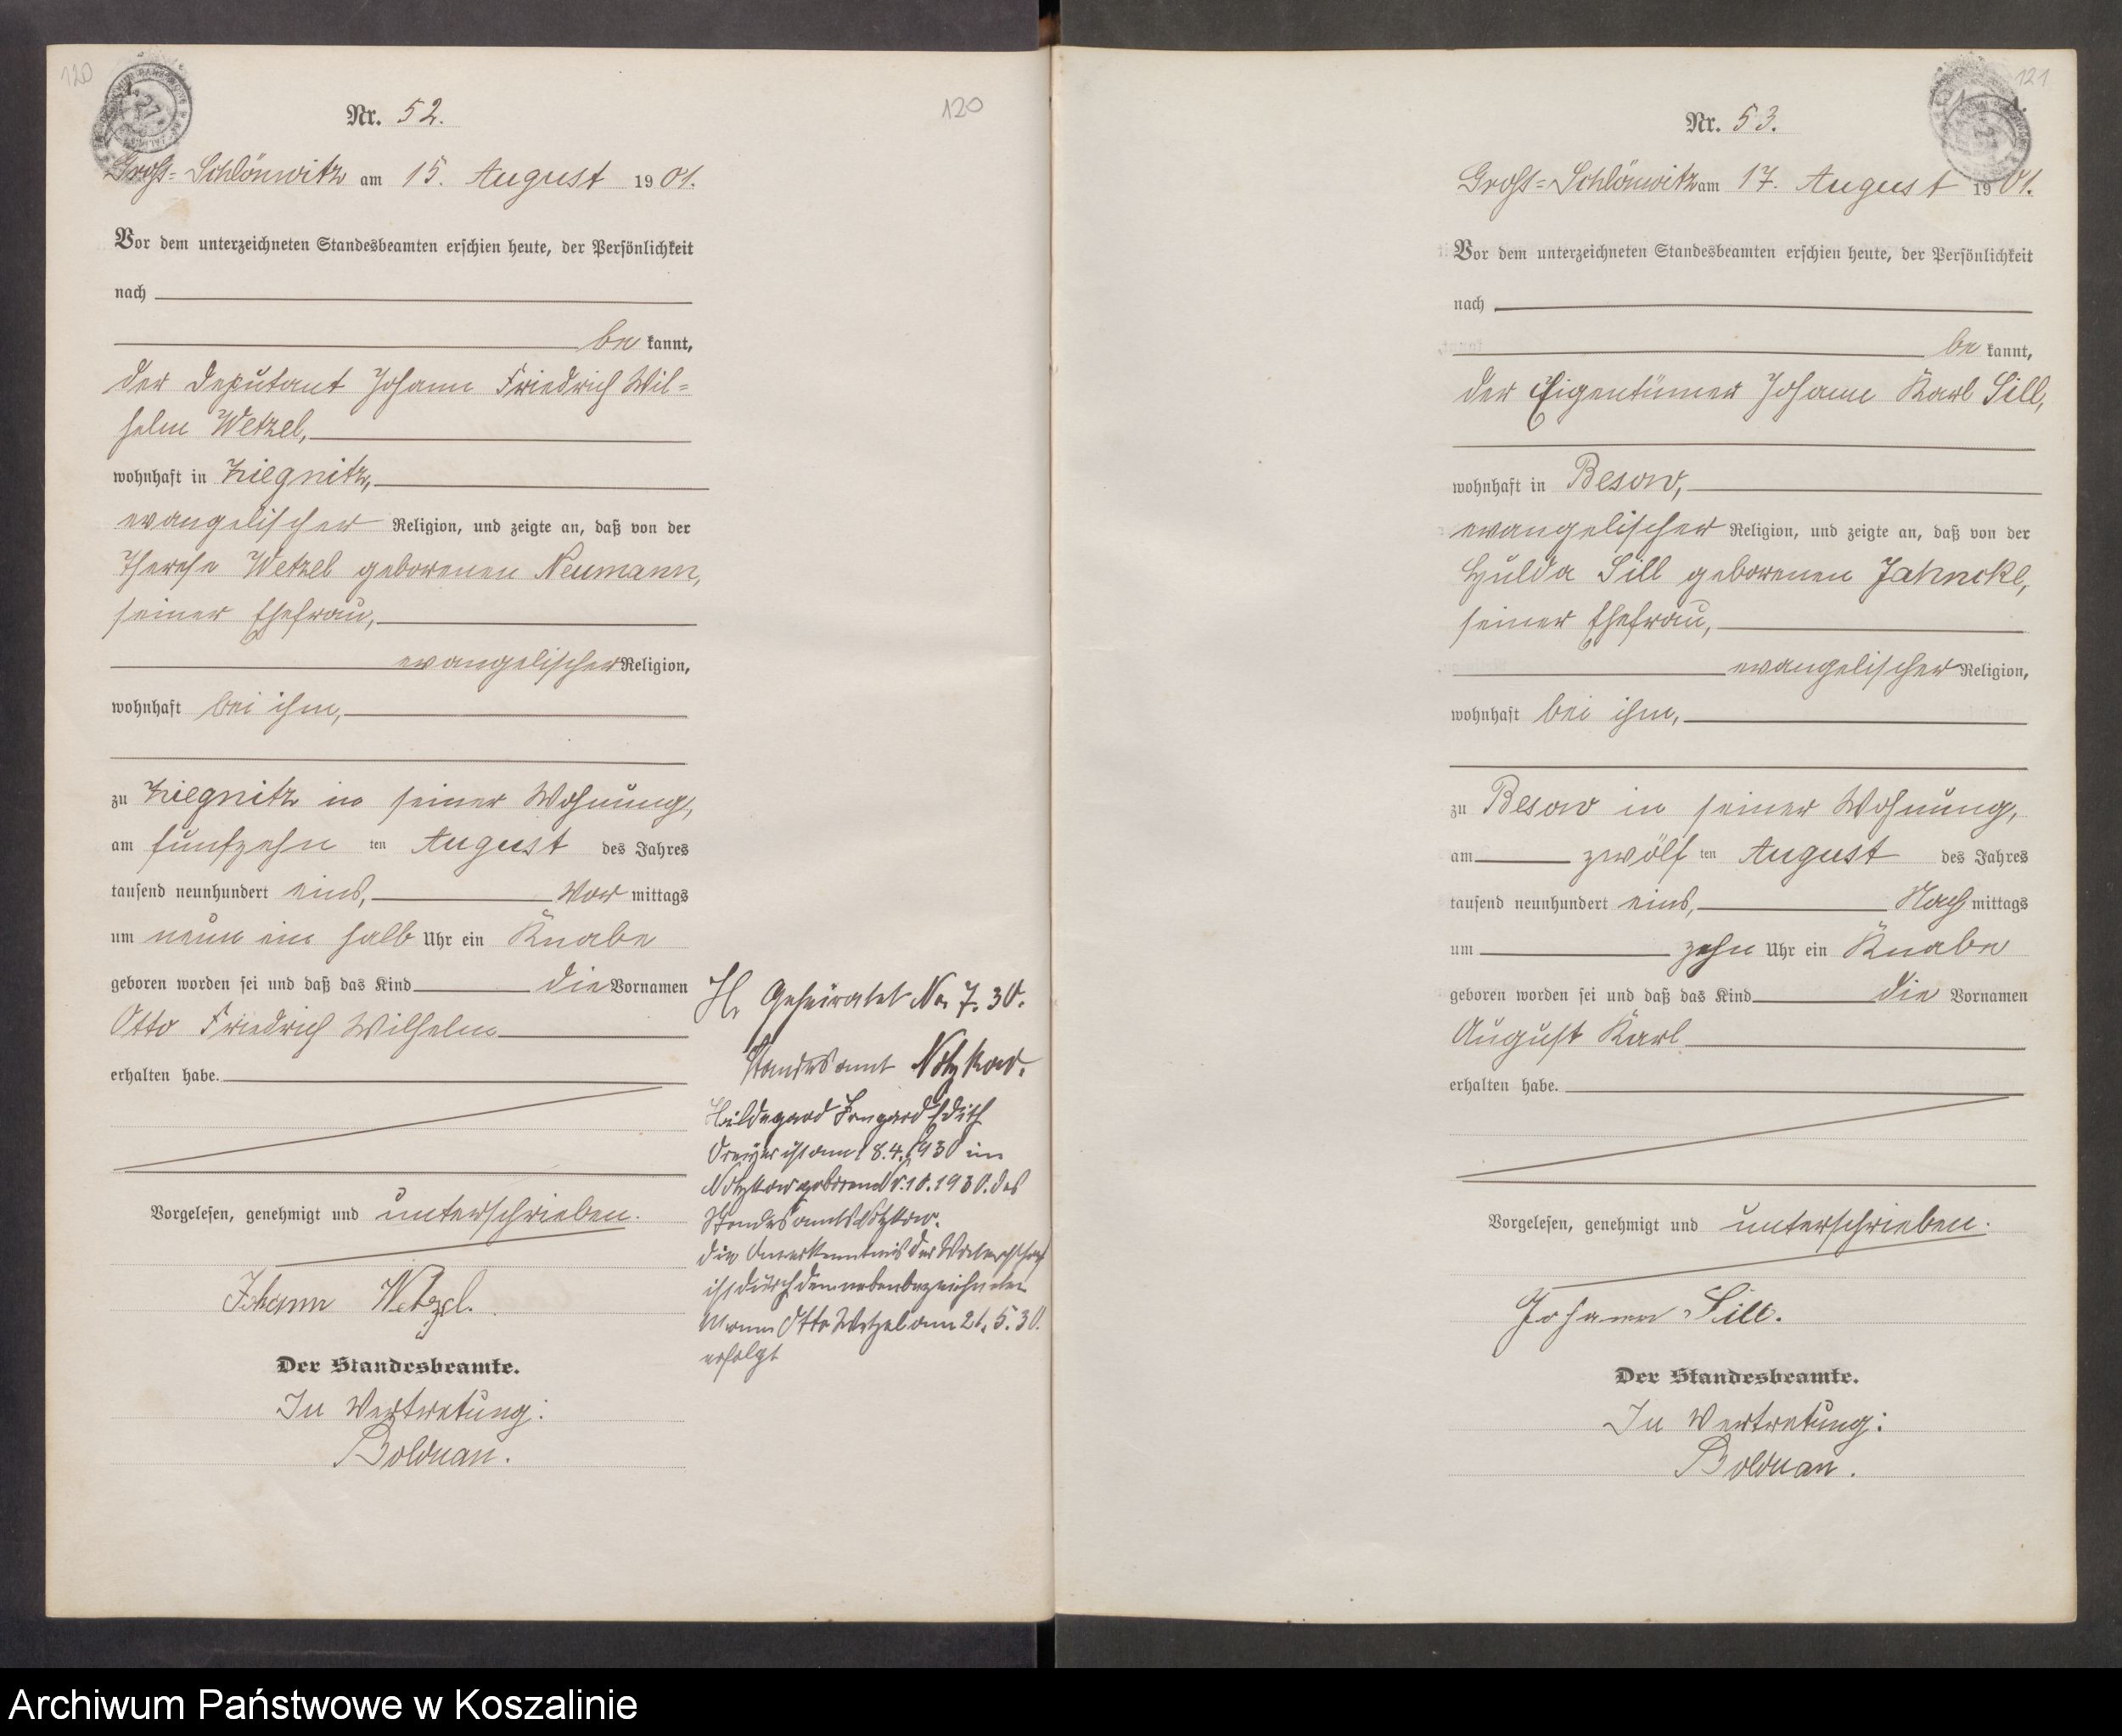 120
Nr. 52.
120
Gross-Schlönwitz am 15. August 1901.
Vor dem unterzeichneten Standesbeamten erschien heute, der Persönlichkeit
nach
be kannt,
der Deputant Johann Friedrich Wil=
helm Wetzel,
wohnhaft in Ziegnitz,
evangelischer Religion, und zeigte an, daß von der
Therese Wetzel geborenen Neumann,
seiner Ehefrau,
evangelischer Religion,
wohnhaft bei ihm,
zu Ziegnitz in seiner Wohnung,
am fünfzehn ten August des Jahres
tausend neunhundert eins, Vor mittags
um neun ein halb Uhr ein Knabe
geboren worden sei und daß das Kind die Vornamen
Otto Friedrich Wilhelm
erhalten habe.
Vorgelesen, genehmigt und unterschrieben.
Johann Wetzel.
Der Standesbeamte.
In Vertretung:
Bolduan.
H. Geheiratet No. 7. 30.
Standesamt Notzkow.
Hildegard Irmgard Edith
ist am 18.4.1930 in
Notzkow geboren Nr. 10. 1930. des
Standesamts Notzkow.
Die Anerkenntnis der Vaterschaft
ist durch den nebenbezeichneten
Mann Otto Wetzel am 21. 5. 30.
erfolgt
121
Nr. 53.
Gross=Schlönwitz am 17. August 1901.
Vor dem unterzeichneten Standesbeamten erschien heute, der Persönlichkeit
nach
be kannt,
der Eigentümer Johann Karl Sill,
wohnhaft in Besow,
evangelischer Religion, und zeigte an, daß von der
Hulda Sill geborenen Jahncke,
seiner Ehefrau,
evangelischer Religion,
wohnhaft bei ihm,
zu Besow in seiner Wohnung,
am zwölf ten August des Jahres
tausend neunhundert eins, Nach mittags
um zehn Uhr ein Knabe
geboren worden sei und daß das Kind die Vornamen
August Karl
erhalten habe.
Vorgelesen, genehmigt und unterschrieben.
Johann Sill.
Der Standesbeamte.
In Vertretung:
Bolduan.
Archiwum Państwowe w Koszalinie